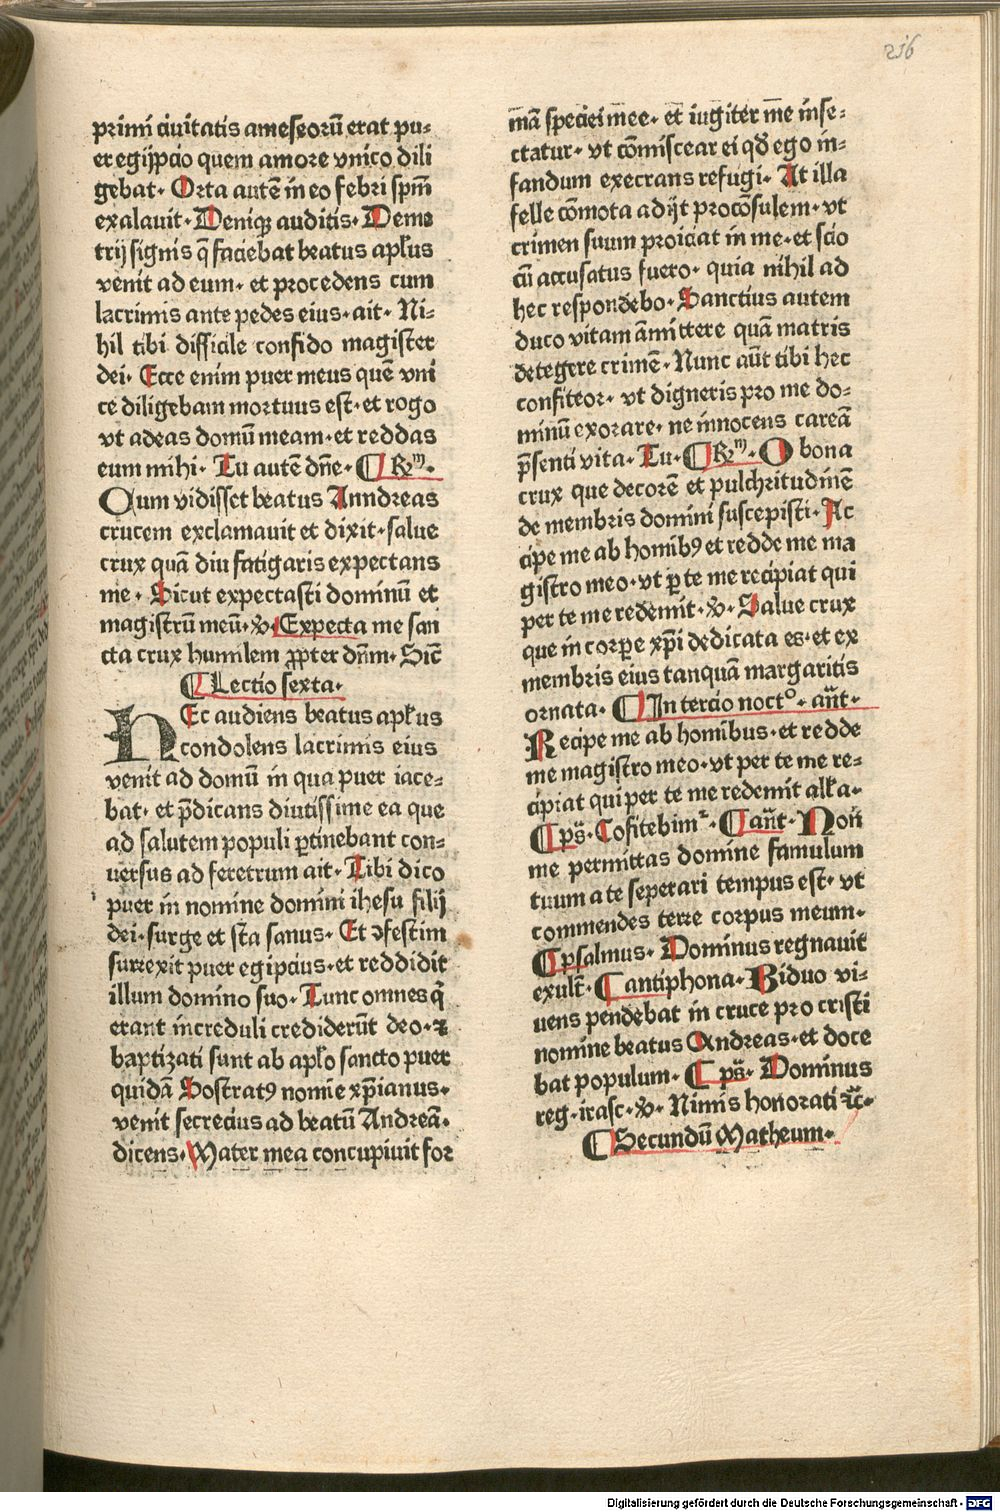 216
primi ciuitatis ameseorū erat pu⸗
er egijpcio quem amore vnico dili
gebat· Orta autē in eo febri spm̄
exalauit· Deniqꝫ auditis· Deme
trij signis q̄ faciebat beatus apl̄us
venit ad eum· et procedens cum
lacrimis ante pedes eius· ait· Ni⸗
hil tibi difficile confido magister
dei· Ecce enim puer meus quē vni
ce diligebam mortuus est· et rogo
vt adeas domū meam· et reddas
eum mihi· Tu autē dn̄e· ¶ Rm·
Qum vidisset beatus Anndreas
crucem exclamauit et dixit· salue
crux quā diu fatigaris expectans
me· Sicut expectasti dominū et
magistrū meū· ꝟ· Expecta me san
cta crux humilem ꝓpter dn̄m· Sic̄
¶ Lectio sexta·
HEc audiens beatus apl̄us
condolens lacrimis eius
venit ad domū in qua puer iace⸗
bat· et p̄dicans diutissime ea que
ad salutem populi ꝑtinebant con⸗
uersus ad feretrum ait· Tibi dico
puer in nomine domini ihesu filij
dei· surge et sta sanus· Et ꝯfestim
surrexit puer egipcius· et reddidit
illum domino suo· Tunc omnes q̄
erant increduli crediderūt deo· ⁊
baptizati sunt ab apl̄o sancto puer
quidā Sostratꝰ nomīe xp̄ianus·
venit secrecius ad beatū Andreā·
dicens· Mater mea concupiuit for
mā speciei mee· et iugiter me inse⸗
ctatur· vt cōmiscear ei qd̄ ego in⸗
fandum execrans refugi· At illa
felle cōmota adijt procōsulem· vt
crimen suum proiciat in me· et scio
cū accusatus fuero· quia nihil ad
hec respondebo· Sanctius autem
duco vitam āmittere quā matris
detegere crimē· Nunc aūt tibi hec
confiteor· vt digneris pro me do⸗
minū exorare· ne innocens careā
p̄senti vita· Tu· ¶ Rm· O bona
crux que decorē et pulchritudinē
de membris domini suscepisti· Ac
cipe me ab homībꝰ et redde me ma
gistro meo· vt ꝑ te me recipiat qui
per te me redemit· ꝟ· Salue crux
que in corꝑe xp̄i dedicata es· et ex
membris eius tanquā margaritis
ornata· ¶ In tercio nocto· an̄t·
Recipe me ab hominibus· et redde
me magistro meo· vt per te me re⸗
cipiat qui per te me redemit all̄a·
¶ ps̄· Cofitebim̄· ¶ an̄t· Non̄
me permittas domine famulum
tuum a te seperari tempus est· vt
commendes terre corpus meum·
¶ psalmus· Dominus regnauit
exult̄· ¶ antiphona· Biduo vi⸗
uens pendebat in cruce pro cristi
nomine beatus Andreas· et doce
bat populum· ¶ ps̄· Dominus
reg· irasc· ꝟ· Nimis honorati ⁊c̄·
¶ Secundū Matheum·
Digitalisierung gefördert durch die Deutsche Forschungsgemeinschaft - DFG